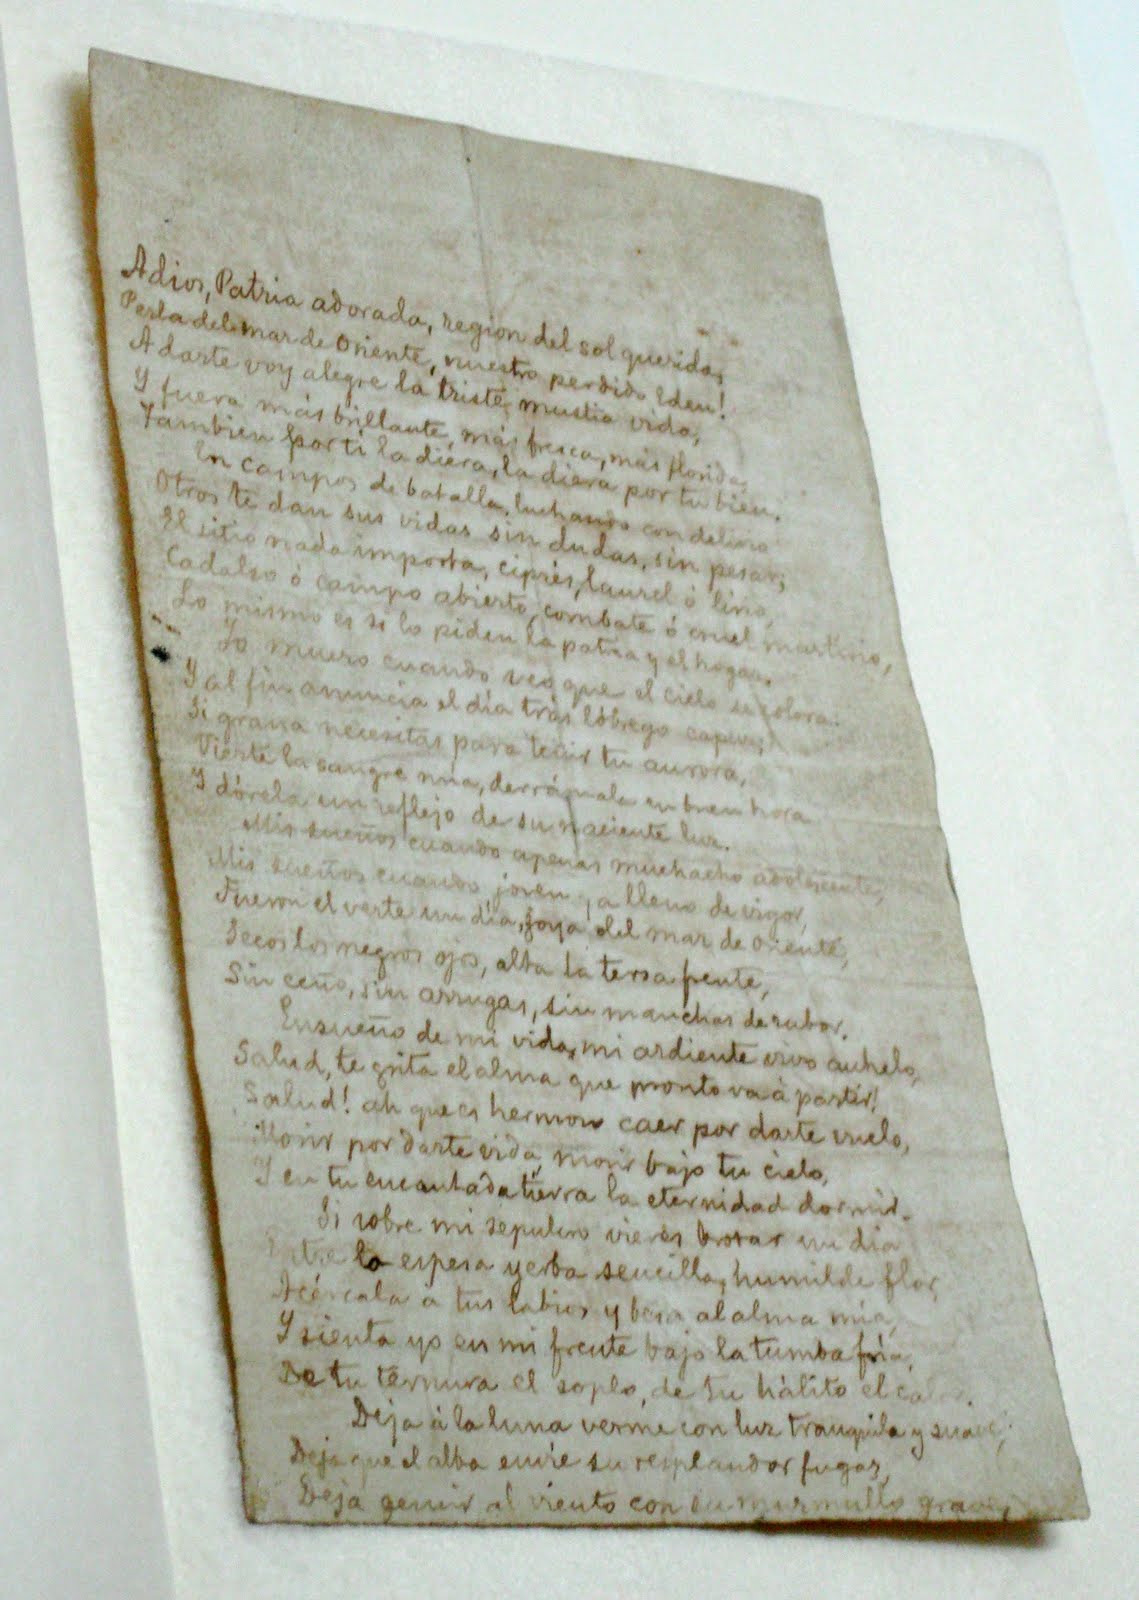 Adios, Patria adorada, region del sol querida,
Perla del mar de Oriente, nuestro perdido Eden!
A darte voy alegre la triste mustia vida,
Y fuera más brillante, más fresca, más florida,
Tambien por ti la diera, la diera por tu bien.
En campos de batalla, luchando con delirio
Otros te dan sus vidas sin dudas, sin pesar;
El sitio nada importa, ciprés, laurel ó lirio,
Cadalso ó campo abierto, combate ó cruel martirio,
Lo mismo es si lo piden la patria y el hogar.
Yo muero cuando veo que el cielo se colora
Y al fin anuncia el día trás lóbrego capuz;
Si grana necesitas para teñir tu aurora,
Vierte la sangre mia, derrámala en buen hora
Y dórela un reflejo de su naciente luz.
Mis sueños cuando apenas muchacho adolescente,
Mis sueños cuando joven ya lleno de vigor,
Fueron el verte un día, joya del mar de Oriente,
Secos los negros ojos, alta la tersa frente,
Sin ceño, sin arrugas, sin manchas de rubor.
Ensueño de mi vida, mi ardiente vivo anhelo,
Salud, te grita el alma que pronto va á partir!
Salud! ah que es hermoso caer por darte vuelo,
Morir por darte vida, morir bajo tu cielo,
Y en tu encantada tierra la eternidad dormir.
Si sobre mi sepulcro vieres brotar un dia
Entre la espesa yerba sencilla, humilde flor,
Acércala a tus labios y besa al alma mía,
Y sienta yo en mi frente bajo la tumba fría,
De tu ternura el soplo, de tu hálito el calor.
Deja á la luna verme con luz tranquila y suave;
Deja que el alba envíe su resplandor fugaz,
Deja gemir al viento con su murmullo grave,